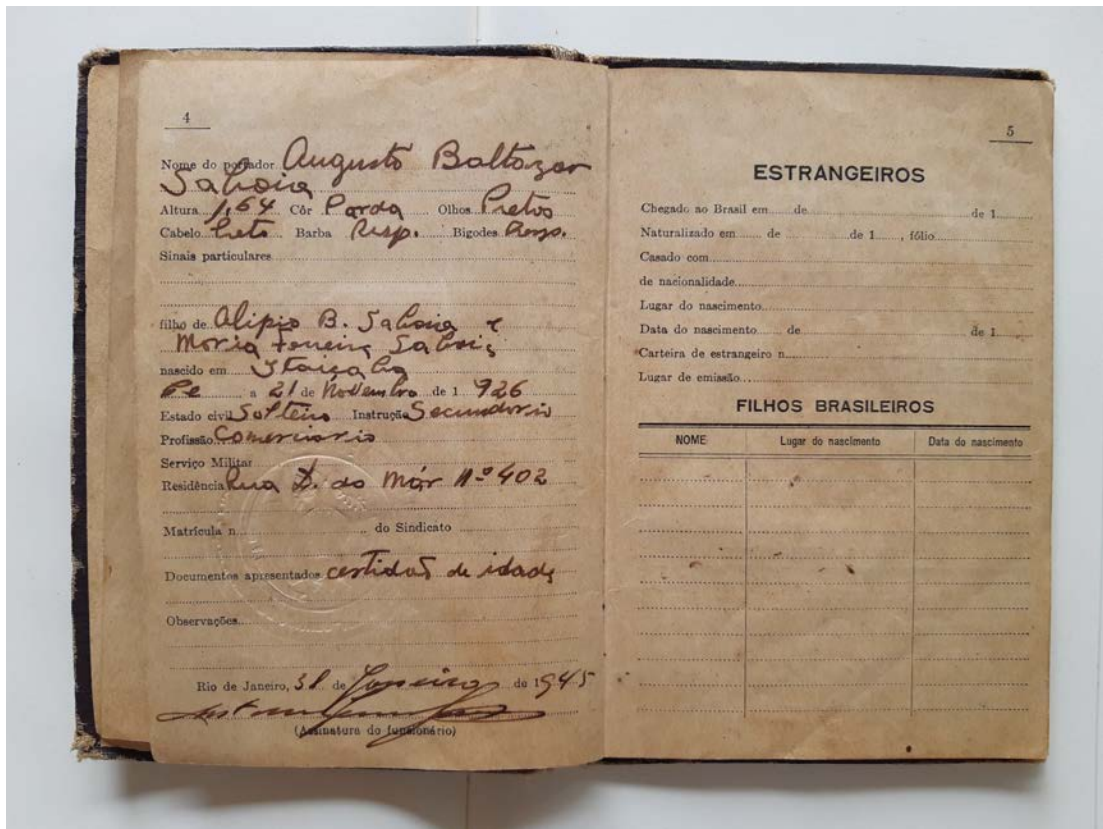 4
Nome do portador Augusto Baltazar
Saboia
Altura 1,64 Côr Parda Olhos Pretos
Cabelo Preto Barba Rasp. Bigodes Rasp.
Sinais particulares
filho de Alipio B. Saboia e
Maria Ferreira Saboia
nascido em Itaiçaba
a 21 de Novembro de 1 926
Estado civil Solteiro Instrução Secundario
Profissão Comerciario
Serviço Militar
Residência Rua D. do Mar Nº 402
Matrícula n do Sindicato
Documentos apresentados certidão de idade
Observações
Rio de Janeiro, 31 de Janeiro de 1945
(Assinatura do funcionário)
5
ESTRANGEIROS
Chegado ao Brasil em de de 1
Naturalizado em de de 1 , fólio
Casado com
de nacionalidade
Lugar do nascimento
Data do nascimento de de 1
Carteira de estrangeiro n.
Lugar de emissão
FILHOS BRASILEIROS
NOME Lugar do nascimento Data do nascimento